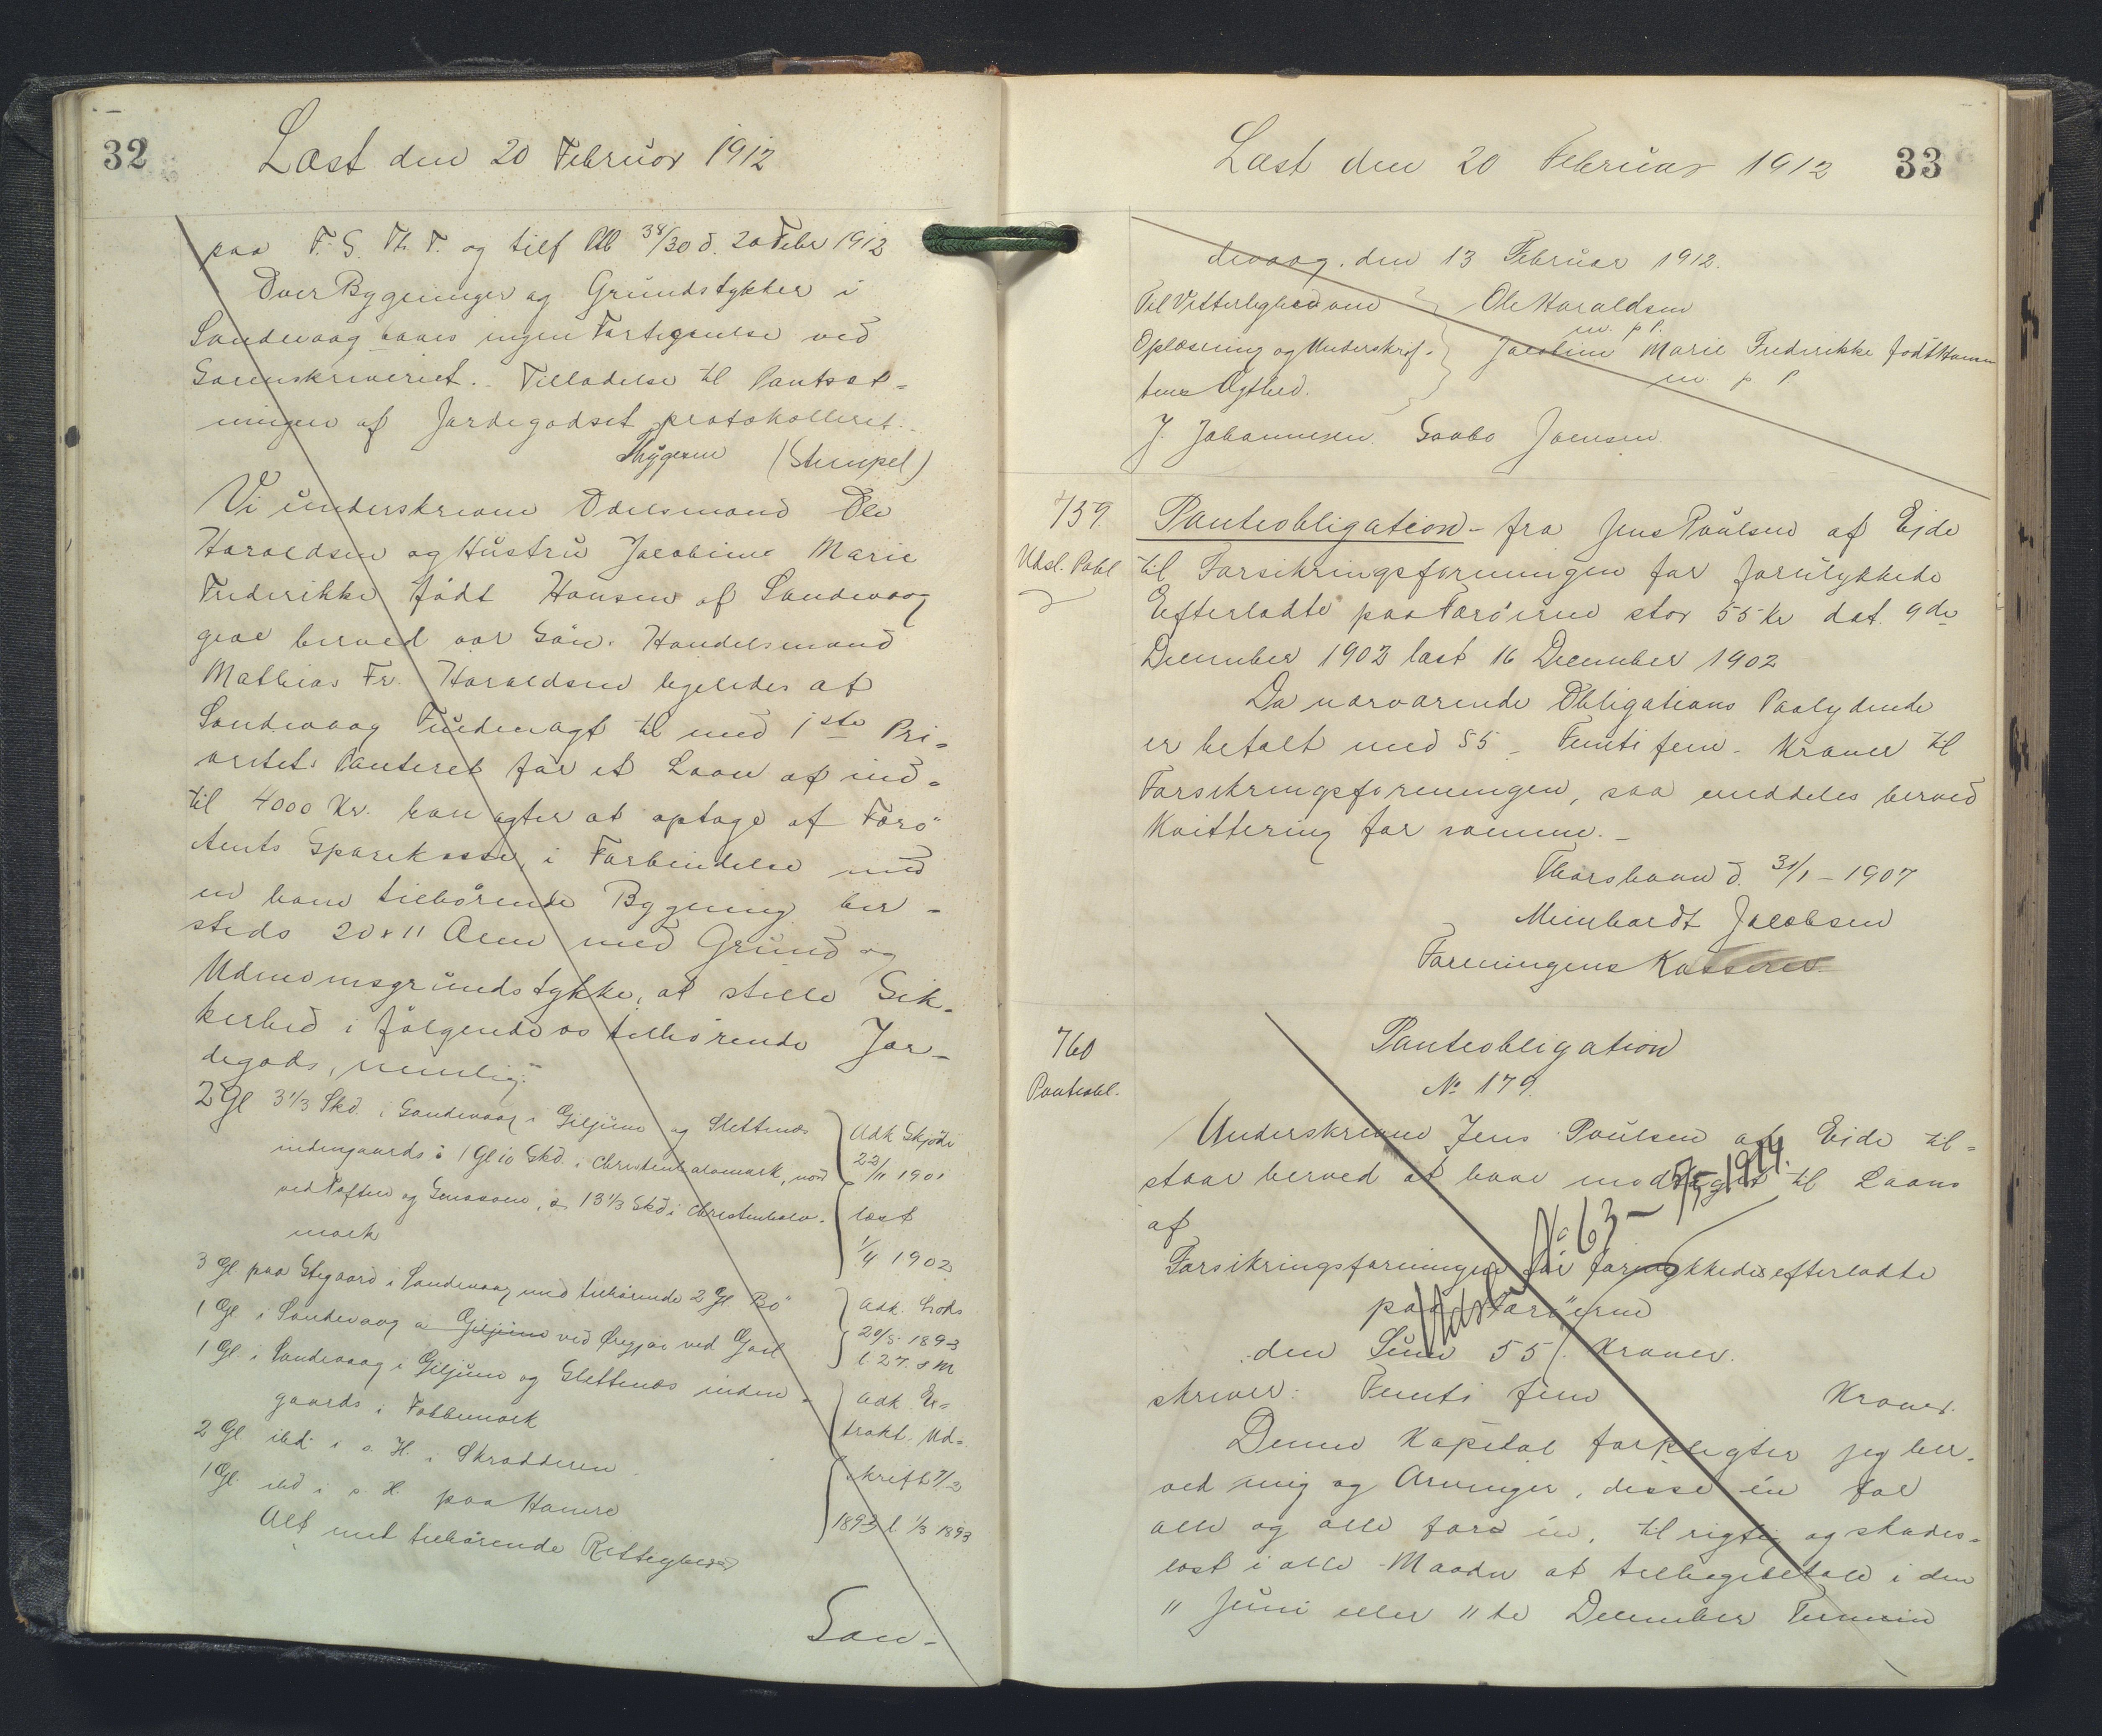 32
Læst den 20 Februar 1912
paa F. S. Th. T. og tilf Ptb 38/30 d. 20 Febr 1912
Over Bygninger og Grundstykker i
Sandevaag haves ingen Fortegnelse ved
Sorenskriveriet.. Tilladelse til Pantsæt-
ningen af Jordegodset protokolleret.
Thygesen (Stempel)
Vi underskrevne Odelsmand Ole
Haraldsen og Hustru Jacobine Marie
Frederikke født Hansen af Sandevaag
give herved vor Søn. Handelsmand
Mathias Fr. Haraldsen ligeledes af
Sandevaag Fuldmagt til med 1ste Pri-
oritets Panteret for et Laan af ind-
til 4000 Kr. han agter at optage af Færø
Amts Sparekasse, i Forbindelse med
en ham tilhørende Bygning her-
steds 20 x 11 Alen med Grund og
Udmarksgrundstykke, at stille Sik-
kerhed i følgende os tilhørende Jor-
degods, nemlig:
2 Gl 3 1/3 Skd. i Sandevaag i Giljum og Slettenæs
indengaards i 1 Gl 10 Skd. i Christenhalemark, nord
ved Toften og, a 13 1/3 Skd i Christenhale-
mark
Adk Skjøde
22/11 1901
læst
1/4 1902
3 Gl paa Stegaard i Sandevaag med tilhørende 2 Gl Bø
1 Gl. i Sandevaag a Giljum ved ved
Adk. Lods
20/5 1893
l. 27. s M
1 Gl i Sandevaag i Giljum og Slettenæs inden-
gaards i Fabbemark
2 Gl ibd i s. H. i Skradderen
1 Gl. ibd i s. H. paa Hamre
Adk. Ex-
trakt. Ud-
skrift 7/2
1893 l. 1/3 1893
Alt med tilhørende Rettigheder
San-
33
Læst den 20 Februar 1912
devaag. den 13 Februar 1912.
Til Vitterlighed om
Oplæsning og Underskrif-
tens Ægthed.
Ole Haraldsen
m. p p.
Jacobine Marie Frederikke født Hansen
m p p
J. Johannesen. Gaabo Joensen
759
Udsl. Pobl
Panteobligation - fra Jens Poulsen af Ejde
til Forsikringsforeningen for forulykkede
Efterladte paa Færøerne stor 55 Kr dat. 9de
December 1902 læst 16 December 1902
Da nærværende Obligations Paalydende
er betalt med 55 - Femti fem - Kroner til
Forsikringsforeningen, saa meddeles herved
Kvittering for samme. -
Thorshavn d. 31/1 - 1907
Meinhardt Jacobsen
Foreningens Kasserer
760
Panteobl.
Panteobligation
No 179
Underskrevne Jens Poulsen af Eide til-
staar herved at have modtaget til Laans
af
Forsikringsforeningen for forulykkedes efterladte
paa Færøerne
den Sum 55/. Kroner.
skriver: Femti fem Kroner.
Udsl. No 63 - 5/5 - 1914.
Denne Kapital forpligter jeg her-
ved mig og Arvinger, disse én for
alle og alle for én, til rigtig og skades-
løst i alle Maader at tilbagebetale i den
" Juni eller 11te December Termin